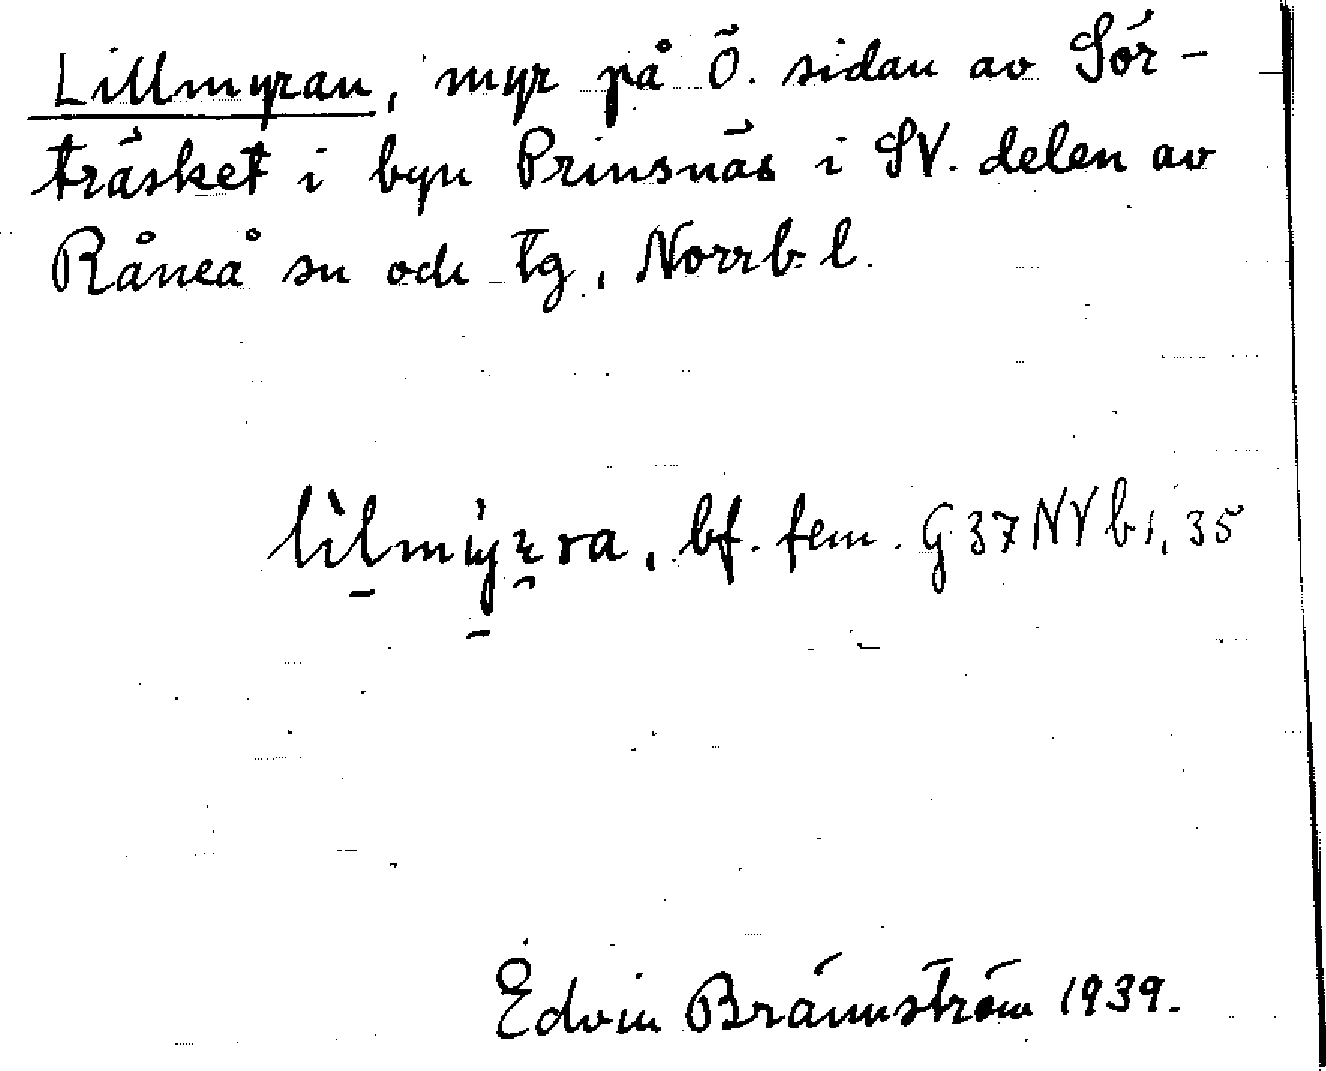 Lillmyran, myr på Ö. sidan av Sör-
träsket i byn Prinsnäs i SV. delen av
Råneå sn och tg, Norrb. l.
lìlmy̱ʀ̯ra, bf. fem. G 37 NV b 1, 35
Edvin Brännström 1939.